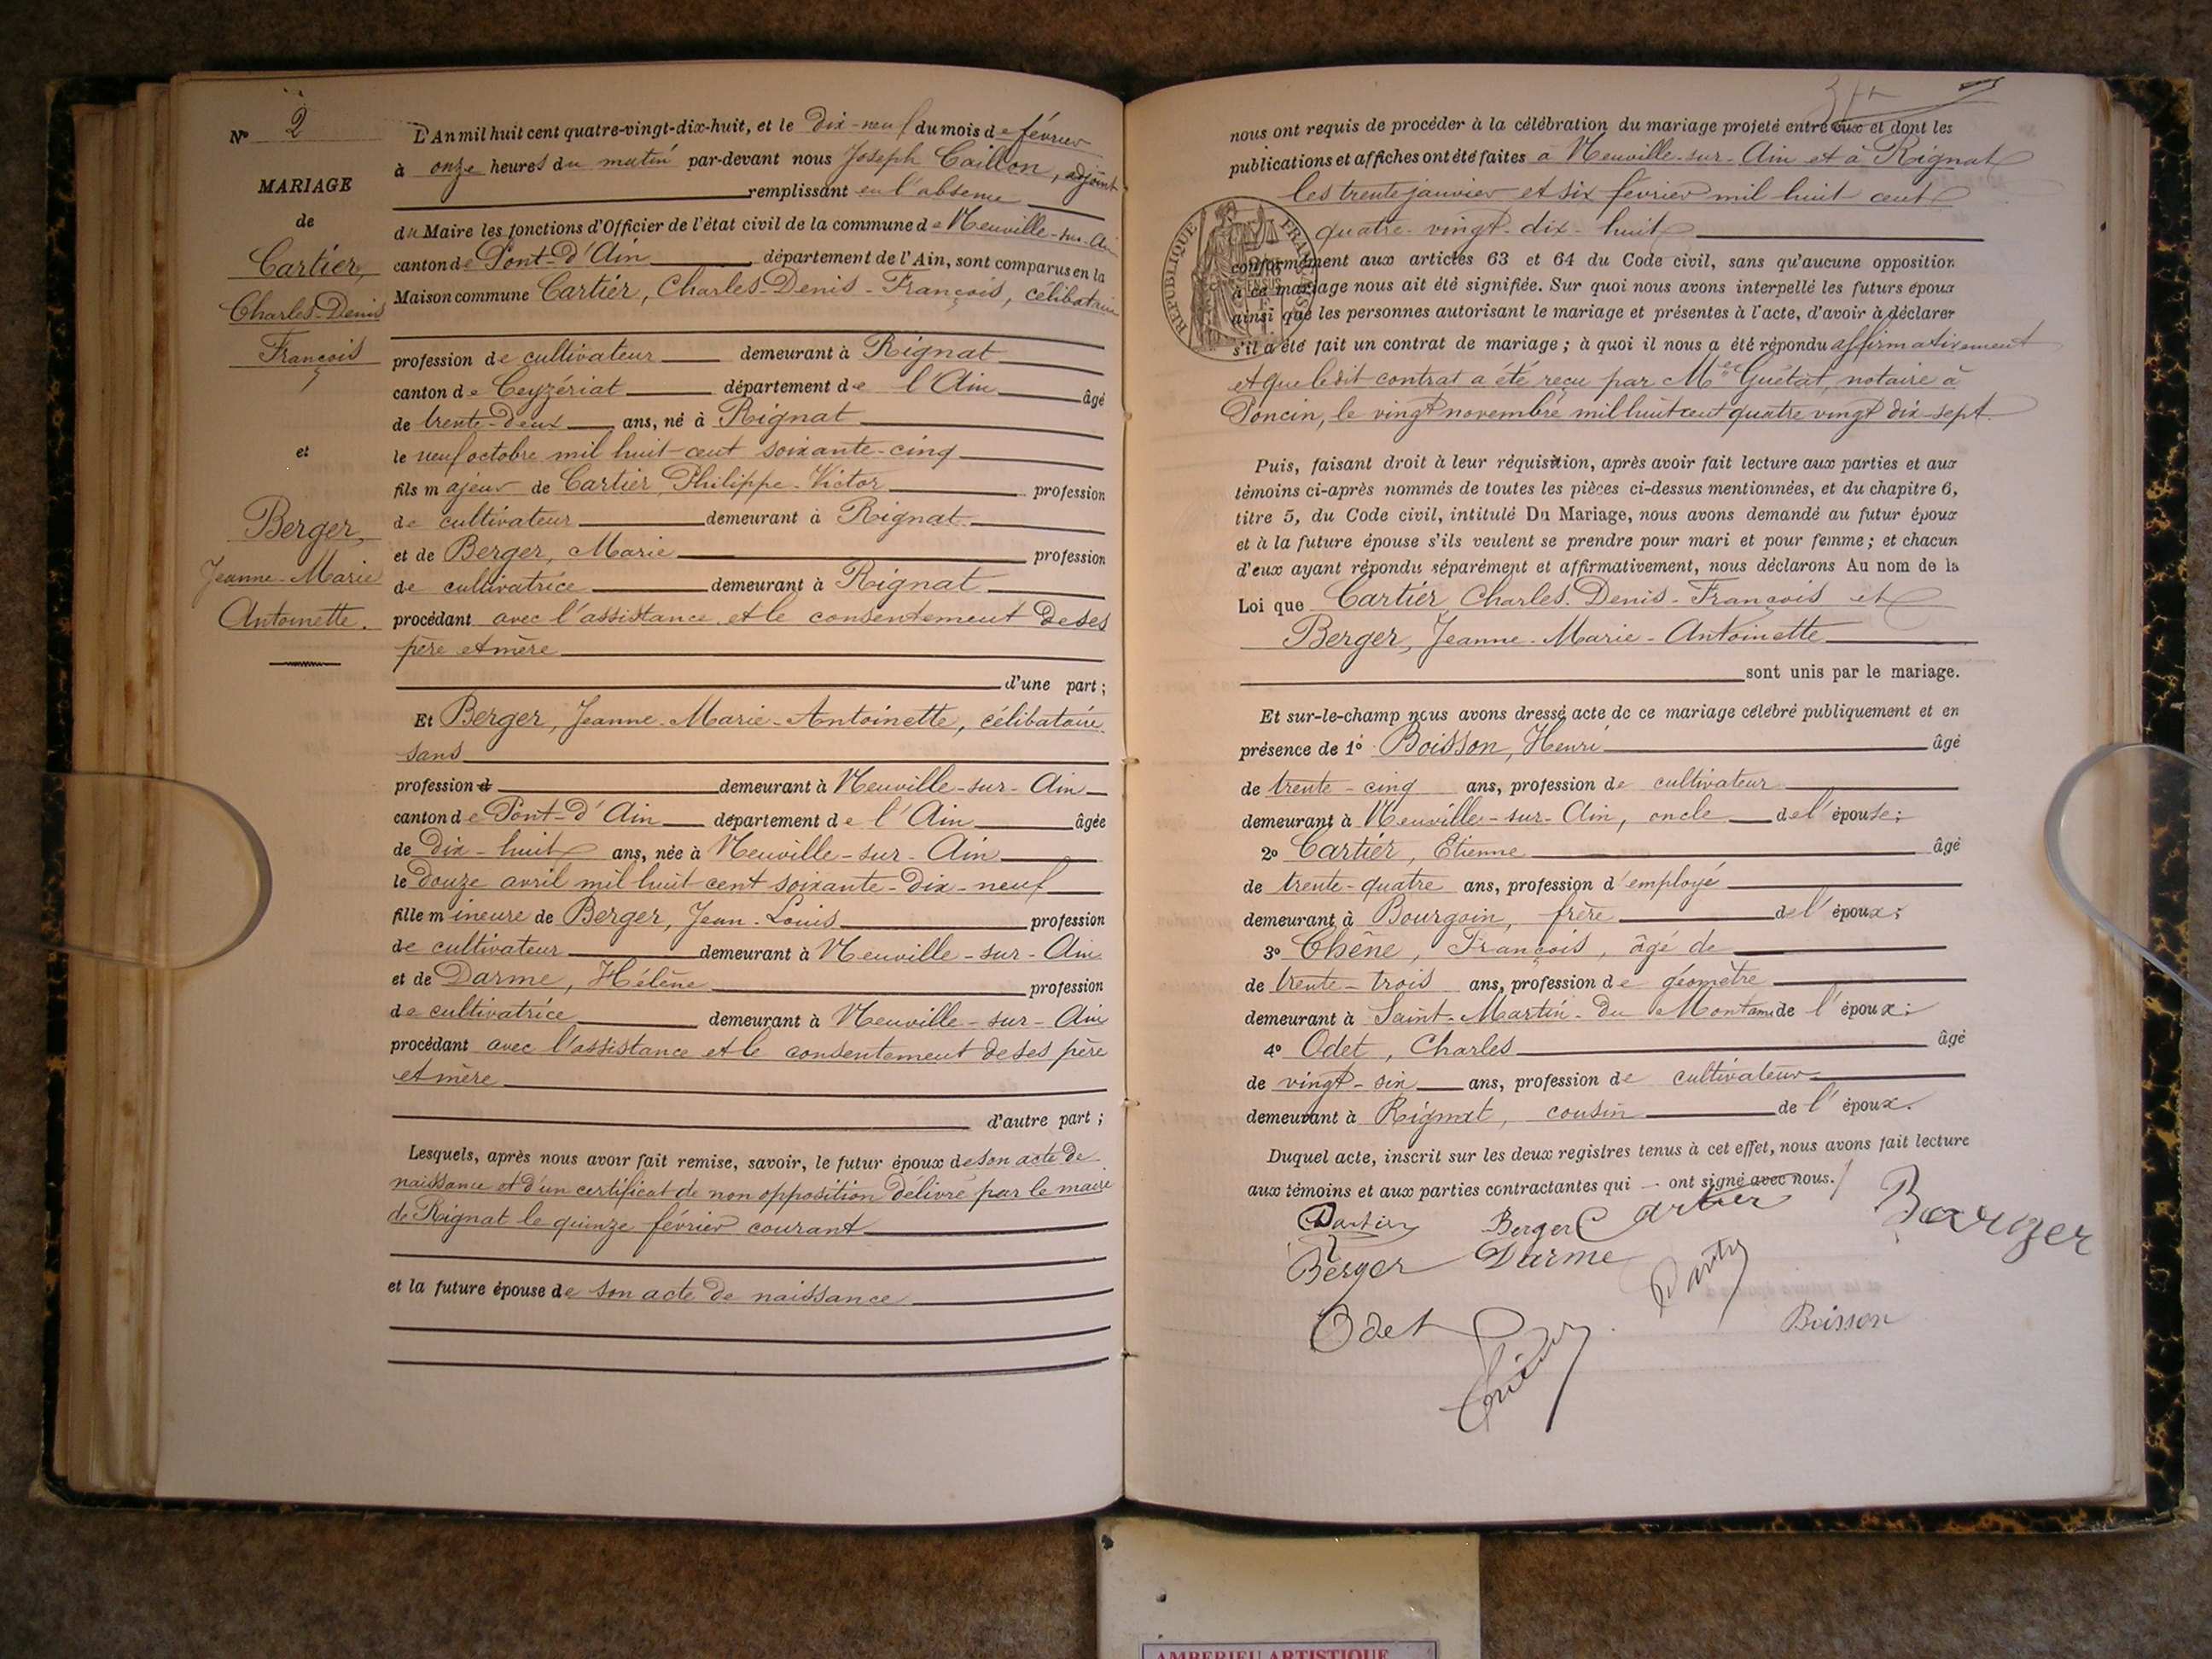 Nº 2
MARIAGE
de
Cartier,
Charles-Denis
François
et
Berger,
Jeanne-Marie
Antoinette.
L'An mil huit cent quatre-vingt-dix-huit, et le dix-neuf du mois de février
à onze heures du matin par-devant nous Joseph Caillon, adjoint
remplissant en l'absence
du Maire les fonctions d'Officier de l'état civil de la commune de Neuville-sur-Ain
canton de Pont-d'Ain département de l'Ain, sont comparus en la
Maison commune Cartier, Charles-Denis-François, célibataire
profession de cultivateur demeurant à Rignat
canton de Ceyzériat département de l'Ain âgé
de trente-deux ans, né à Rignat
le neuf octobre mil huit cent soixante-cinq
fils majeur de Cartier, Philippe-Victor profession
de cultivateur demeurant à Rignat
et de Berger, Marie profession
de cultivatrice demeurant à Rignat
procédant avec l'assistance et le consentement de ses
père et mère
d'une part ;
Et Berger, Jeanne-Marie-Antoinette, célibataire
sans
profession d demeurant à Neuville-sur-Ain
canton de Pont-d'Ain département de l'Ain âgée
de dix-huit ans, née à Neuville-sur-Ain
le douze avril mil huit cent soixante-dix-neuf
fille mineure de Berger, Jean-Louis profession
de cultivateur demeurant à Neuville-sur-Ain
et de Darme, Hélène profession
de cultivatrice demeurant à Neuville-sur-Ain
procédant avec l'assistance et le consentement de ses père
et mère
d'autre part ;
Lesquels, après nous avoir fait remise, savoir, le futur époux de son acte de
naissance et d'un certificat de non opposition délivré par le maire
de Rignat le quinze février courant
et la future épouse de son acte de naissance
nous ont requis de procéder à la célébration du mariage projeté entre eux et dont les
publications et affiches ont été faites à Neuville-sur-Ain et à Rignat
les trente janvier et six février mil huit cent
quatre-vingt-dix-huit
RÉPUBLIQUE FRANÇAISE
conformément aux articles 63 et 64 du Code civil, sans qu'aucune opposition
à ce mariage nous ait été signifiée. Sur quoi nous avons interpellé les futurs époux
ainsi que les personnes autorisant le mariage et présentes à l'acte, d'avoir à déclarer
s'il a été fait un contrat de mariage ; à quoi il nous a été répondu affirmativement
et que ledit contrat a été reçu par Me Guétat, notaire à
Poncin, le vingt novembre mil huit cent quatre vingt dix-sept.
Puis, faisant droit à leur réquisition, après avoir fait lecture aux parties et aux
témoins ci-après nommés de toutes les pièces ci-dessus mentionnées, et du chapitre 6,
titre 5, du Code civil, intitulé Du Mariage, nous avons demandé au futur époux
et à la future épouse s'ils veulent se prendre pour mari et pour femme ; et chacun
d'eux ayant répondu séparément et affirmativement, nous déclarons Au nom de la
Loi que Cartier, Charles-Denis-François et
Berger, Jeanne-Marie-Antoinette
sont unis par le mariage.
Et sur-le-champ nous avons dressé acte de ce mariage célébré publiquement et en
présence de 1º Boisson, Henri âgé
de trente-cinq ans, profession de cultivateur
demeurant à Neuville-sur-Ain, oncle de l'épouse ;
2º Cartier, Etienne âgé
de trente-quatre ans, profession d'employé
demeurant à Bourgoin, frère de l'époux ;
3º Chêne, François, âgé de
de trente-trois ans, profession de géomètre
demeurant à Saint-Martin-du-Mont ami de l'époux ;
4º Odet, Charles âgé
de vingt-six ans, profession de cultivateur
demeurant à Rignat, cousin de l'époux.
Duquel acte, inscrit sur les deux registres tenus à cet effet, nous avons fait lecture
aux témoins et aux parties contractantes qui ont signé avec nous.
Berger Cartier Berger
Berger Darme
Odet Boisson
AMBERIEU ARTISTIQUE